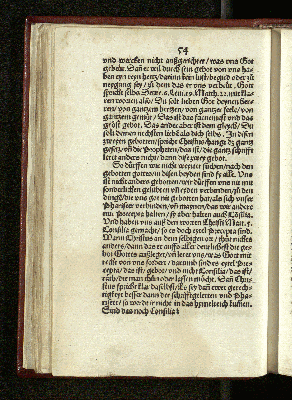 54
vnd wercken nicht außgerichtet / was vns Got
gebeut. Dañ er wil durch sein gebot von vns ha-
ben eyn reyn hertz / darinn keyn lust / begird oder zu
neygung sey / zů dem das er vns verbeüt. Gott
spricht selbs
wonen also / Du solt lieben Got deynen Her-
ren / von gantzem hertzen / von gantzer seele / von
gantzem gemüt / Das ist das fürnemst vnd das
gröst gebot. Das ander aber ist dem gleych / Du
solt deinen nechsten lieben als dich selbs. In disen
zweyen gebotten / spricht Christus hanget dz gantz
gesetz / vñ die Propheten / das ist / die gantz schrifft
leret anders nicht / dann dise zwey gebot.
So dürffen wir nicht weytter suchen / nach den
gebotten gottes / in disen beyden sind sy alle. Vns
ist nicht anders geboten / wir dürffen vns nit mit
sonderlichen gelübten vñ eyden verbinden / zů den
dingen / die vns got nit gebotten hat / als sich vnsere
Phariseer verbinden / vñ maynen / das wir andere
nur Precepta halten / sy aber halten auch Consilia.
Vnd haben vns auß den worten Christi Mat. 5.
Consilia gemacht / so es doch eytel Precepta sind.
Wann Christus an dem selbigen ort / thůt nichts
anders / dann das er auffs aller deutlichest die ge-
bot Gottes außleget / vñ leret vns / was Got mit
ernste von vns fordert / darumb sind es eytel Pre-
cepta / das ist / gebot / vnd nicht Consilia / das ist /
räth / die man thůn oder lassen möcht. Dañ Chri-
stus spricht klar daselbst / Es sey dañ ewer gerech-
tigkeyt besser dann der schrifftgelerten vnd Pha-
riseer / so werdt ir nicht in das hymelreich kumen.
Sind das noch Consilia?